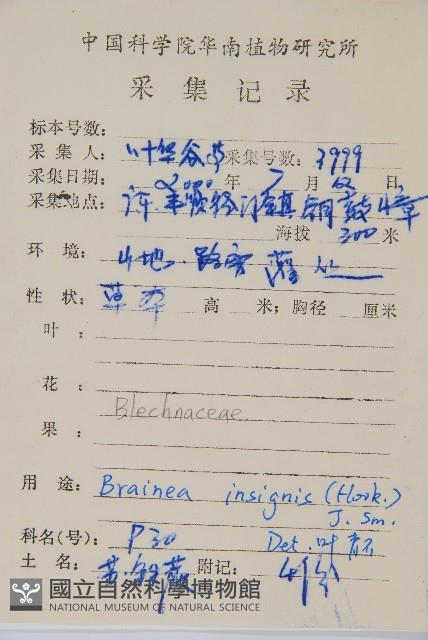 中国科学院华南植物研究所
采集记录
标本号数：
采集人：叶华谷 采集号数：3999
采集日期：2000 年 7 月 日
采集地点： 铜鼓嶂
海拔 300 米
环境：山地 路旁 灌丛
性状：草本 高 米；胸径 厘米
叶
花
Blechnaceae
果：
用途：Brainea insignis (Hook.)
J. Sm.
科名(号)：P30 Det：叶
土名：苏铁蕨 附记：4份
國立自然科學博物館
NATIONAL MUSEUM OF NATURAL SCIENCE